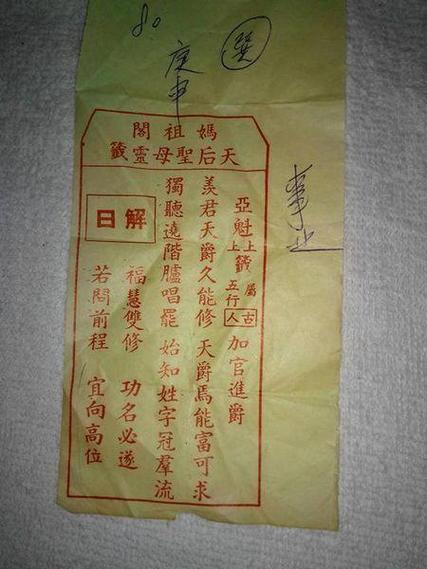 庚申
媽祖閣
天后聖母靈籤
亞魁 上上籤 屬五行 古人 加官進爵
羨君天爵久能修 天爵焉能富可求
獨聽遶階臚唱罷 始知姓字冠羣流
解曰
福慧雙修 功名必遂
若問前程 宜向高位